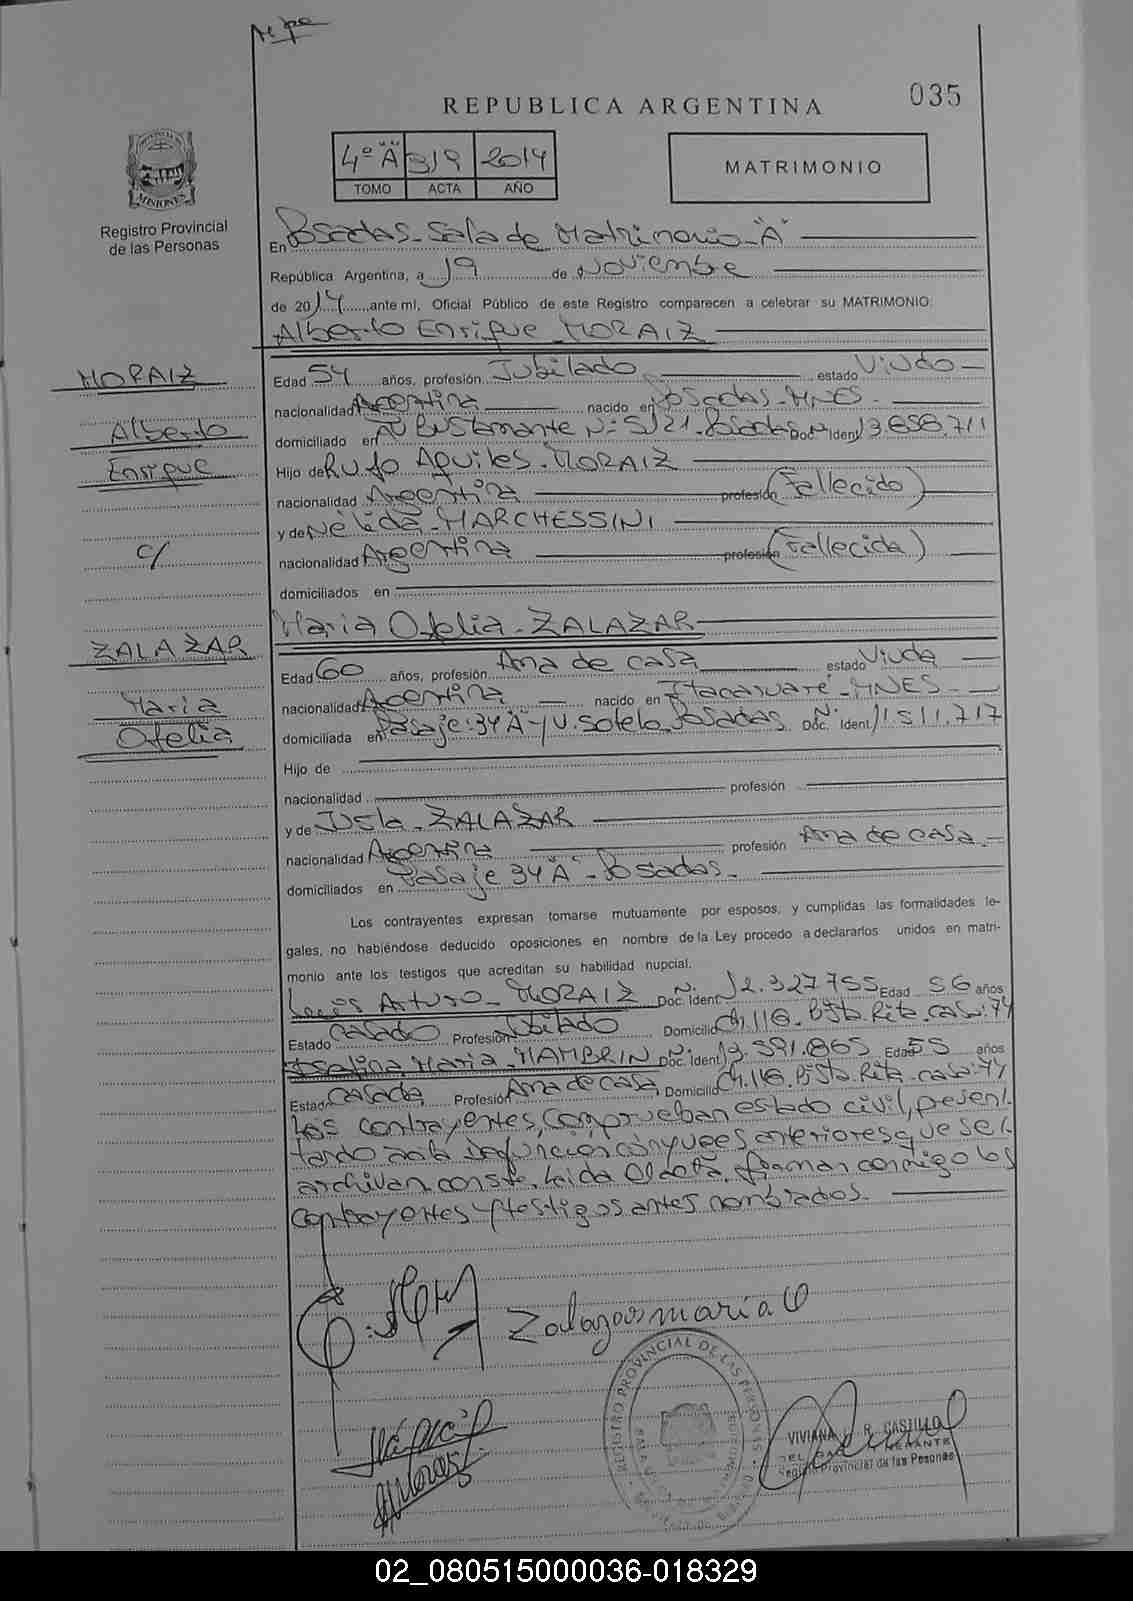 035
REPUBLICA ARGENTINA
4º "A" 319 2014
TOMO ACTA AÑO
MATRIMONIO
MISIONES
Registro Provincial
de las Personas
En Posadas-Sala de Matrimonio-"A"
República Argentina, a 19 de Noviembre
de 2014 ante mí, Oficial Público de este Registro comparecen a celebrar su MATRIMONIO:
Alberto Enrique MORAIZ
MORAIZ
Alberto
Enrique
c/
ZALAZAR
Maria
Ofelia
Edad 54 años, profesión Jubilado estado Viudo
nacionalidad Argentina nacido en Posadas-MNES.
domiciliado en Av Bustamante Nº 5121-Posadas Doc. Nº Ident 13.658.711
Hijo de Rufo Aquiles-MORAIZ
nacionalidad Argentina profesión (Fallecido)
y de Nélida-MARCHESSINI
nacionalidad Argentina profesión (Fallecida)
domiciliados en
Maria Ofelia-ZALAZAR
Edad 60 años, profesión Ama de casa estado Viuda
nacionalidad Argentina nacido en Itacaruaré-MNES-
domiciliada en Pasaje:34"A"-y V. Sotelo Posadas. Doc. Nº Ident 11.511.717
Hijo de
nacionalidad profesión
y de Justa-ZALAZAR
nacionalidad Argentina profesión Ama de casa.-
domiciliados en Pasaje 34"A"-Posadas-
Los contrayentes expresan tomarse mutuamente por esposos, y cumplidas las formalidades le-
gales, no habiéndose deducido oposiciones en nombre de la Ley procedo a declararlos unidos en matri-
monio ante los testigos que acreditan su habilidad nupcial.
Arturo-MORAIZ Doc. Nº Ident 12.327.755 Edad 56 años
Estado Casado Profesión Jubilado Domicilio Ch.116-Bº Sta. Rita-casa:74
Maria-MAMBRIN Doc. Nº Ident 13.591.865 Edad 55 años
Estado Casada Profesión Ama de casa Domicilio Ch.116.Bº Sta. Rita-casa:74
Los contrayentes, comprueban estado civil, presen-
tando acta defunción cónyuges anteriores que se
archivan. conste. Leída el acta, firman conmigo los
contrayentes y testigos antes nombrados.
Zalazar maria O
REGISTRO PROVINCIAL DE LAS PERSONAS
VIVIANA R. CASTILLO
Registro Provincial de las Personas
02_080515000036-018329